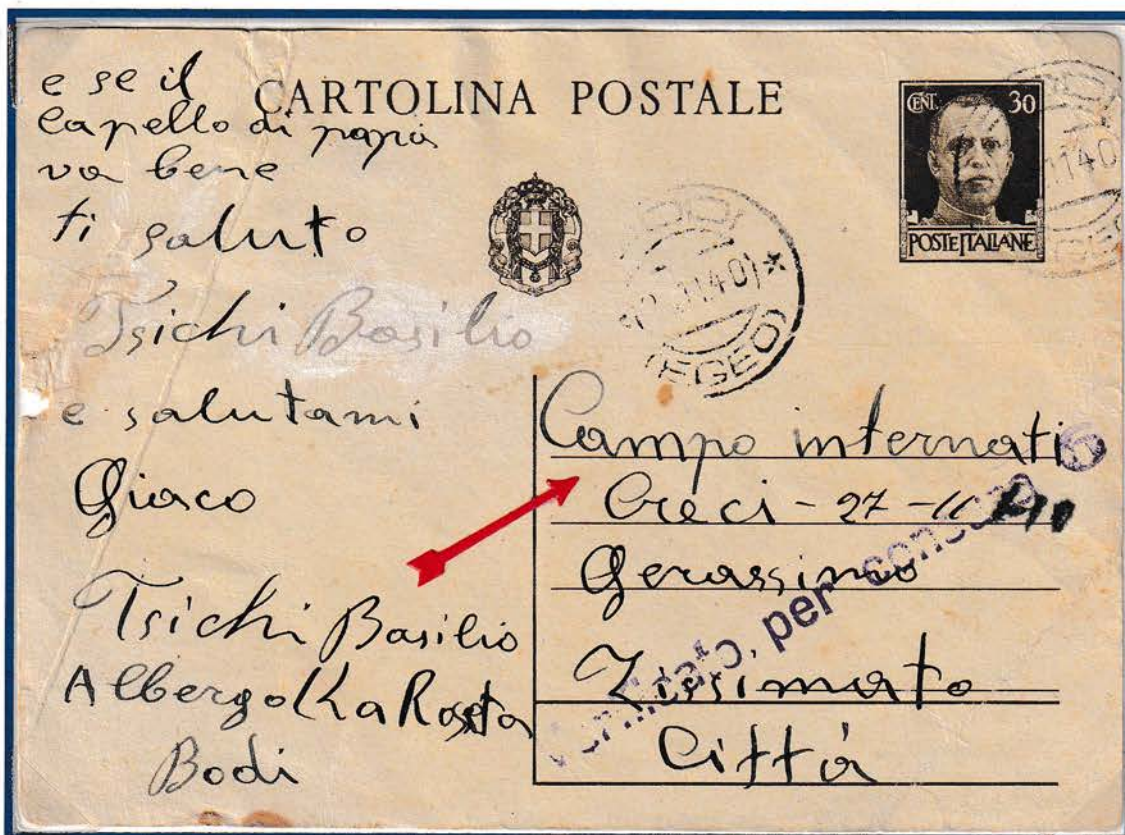 e se il
Capello di papà
va bene
ti saluto
Tsichi Basilio
e salutami
Giaco
Tsichi Basilio
Albergo La Rosta
Bodi
CARTOLINA POSTALE
CENT. 30
POSTE ITALIANE
(EGEO)
40
EGEO
Campo internati
Creci - 27 - 11 40
Gerassimo
Zissimato
Città
Verificato, per censura